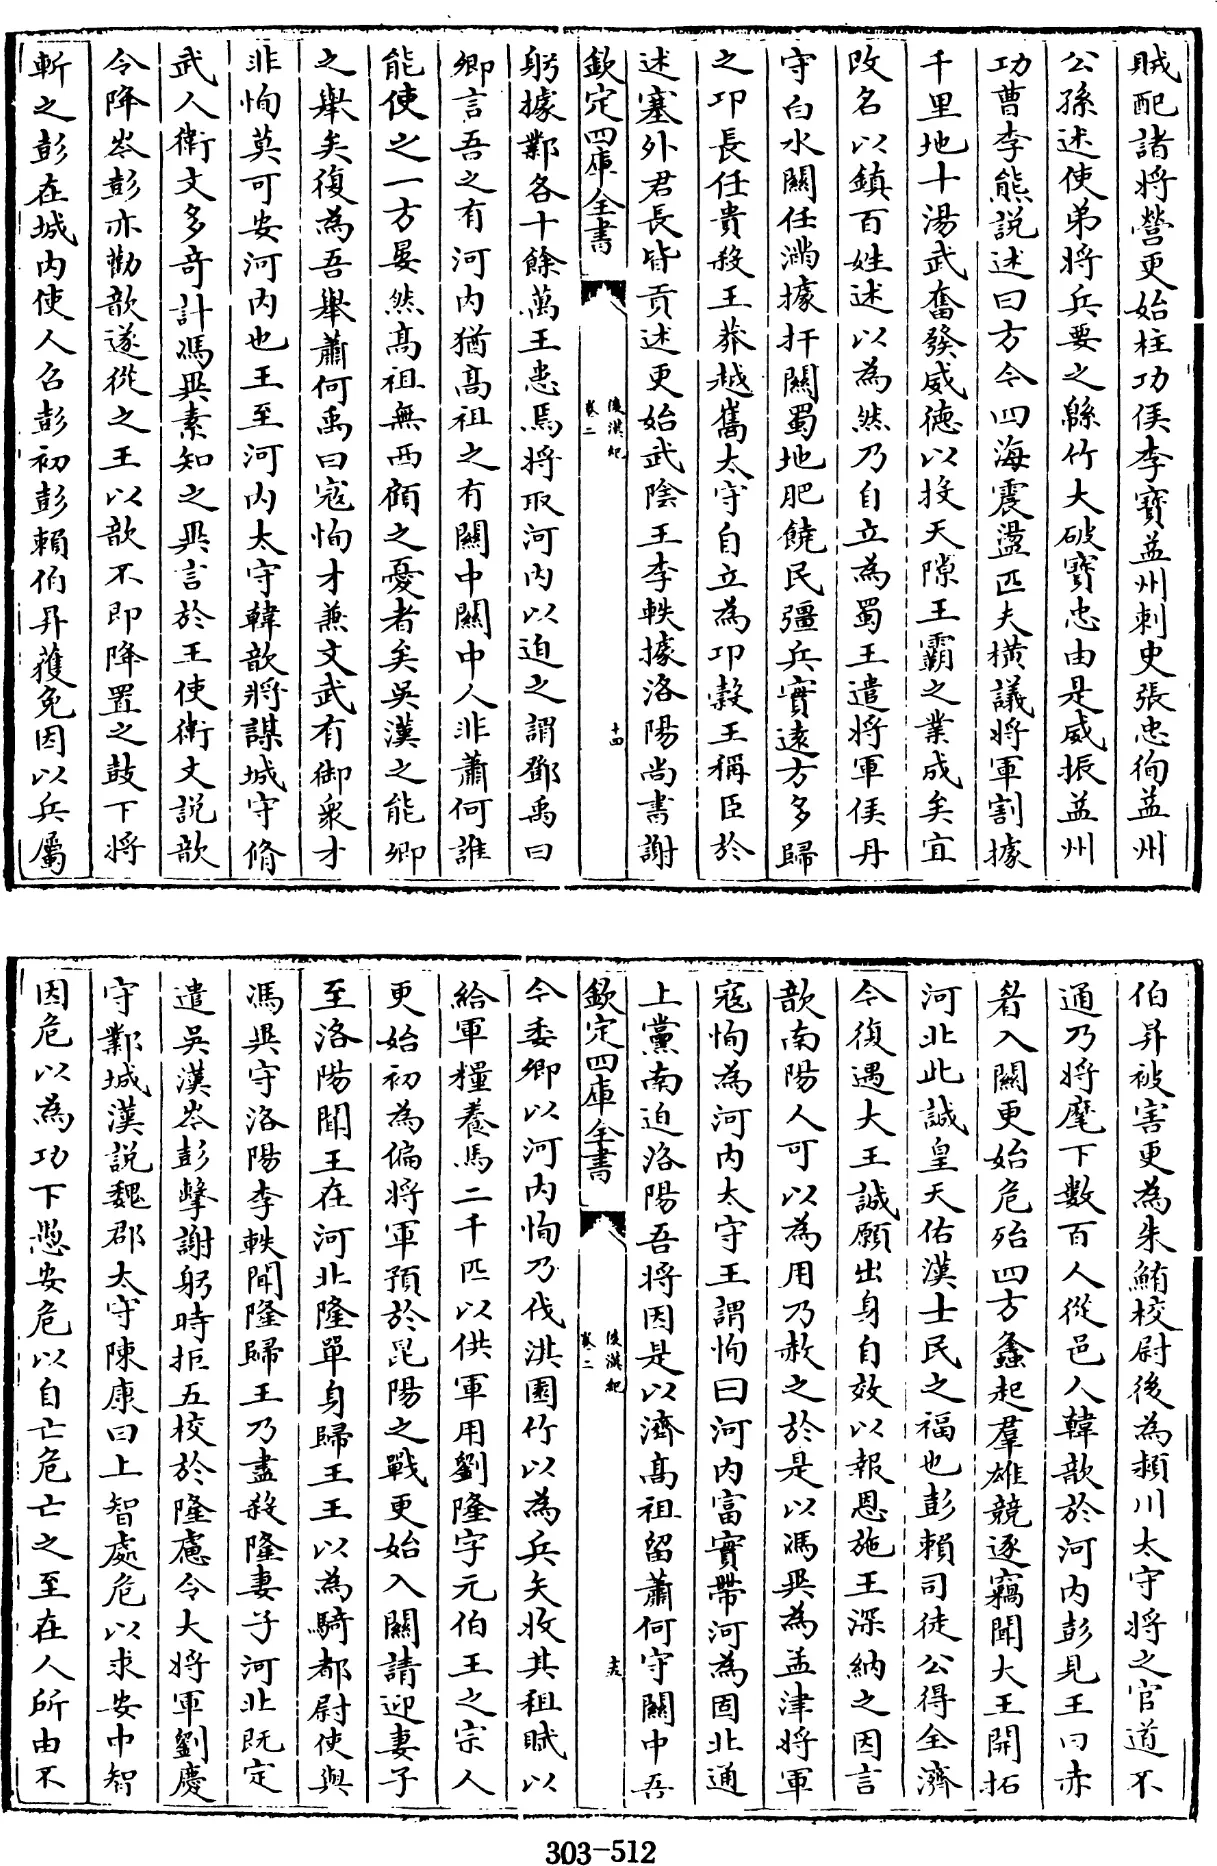 賊配諸將營更始柱功侯李寶益州刺史張忠徇益州
公孫述使弟將兵要之緜竹大破寶忠由是威振益州
功曹李熊説述曰方今四海震盪匹夫横議將軍割據
千里地十湯武奮發威德以投天隙王霸之業成矣宜
改名以鎮百姓述以為然乃自立為蜀王遣將軍侯丹
守白水關任滿據扞關蜀地肥饒民彊兵實逺方多歸
之卭長任貴殺王莽越嶲太守自立為卭穀王稱臣於
述塞外君長皆貢述更始武陰王李軼據洛陽尚書謝
欽定四庫全書
後漢紀
卷二
十四
躬據鄴各十餘萬王患焉將取河内以迫之謂鄧禹曰
卿言吾之有河内猶髙祖之有關中關中人非蕭何誰
能使之一方晏然髙祖無西顧之憂者矣吳漢之能卿
之舉矣復為吾舉蕭何禹曰寇恂才兼文武有御衆才
非恂莫可安河内也王至河内太守韓歆將謀城守脩
武人衛文多奇計馮異素知之異言於王使衛文説歆
令降岑彭亦勸歆遂從之王以歆不即降置之鼓下將
斬之彭在城内使人召彭初彭賴伯升獲免因以兵屬
伯升被害更為朱鮪校尉後為潁川太守將之官道不
通乃將麾下數百人從邑人韓歆於河内彭見王曰赤
眉入關更始危殆四方蠭起羣雄競逐竊聞大王開拓
河北此誠皇天佑漢士民之福也彭賴司徒公得全濟
今復遇大王誠願出身自效以報恩施王深納之因言
歆南陽人可以為用乃赦之於是以馮異為孟津將軍
寇恂為河内太守王謂恂曰河内富實帶河為固北通
上黨南迫洛陽吾將因是以濟髙祖留蕭何守關中吾
欽定四庫全書
後漢紀
卷二
十五
今委卿以河内恂乃伐淇園竹以為兵矢收其租賦以
給軍糧養馬二千匹以供軍用劉隆字元伯王之宗人
更始初為偏將軍預於昆陽之戰更始入關請迎妻子
至洛陽聞王在河北隆單身歸王王以為騎都尉使與
馮異守洛陽李軼聞隆歸王乃盡殺隆妻子河北既定
遣吳漢岑彭擊謝躬時拒五校於隆慮令大將軍劉慶
守鄴城漢説魏郡太守陳康曰上智處危以求安中智
因危以為功下愚安危以自亡危亡之至在人所由不
303-512